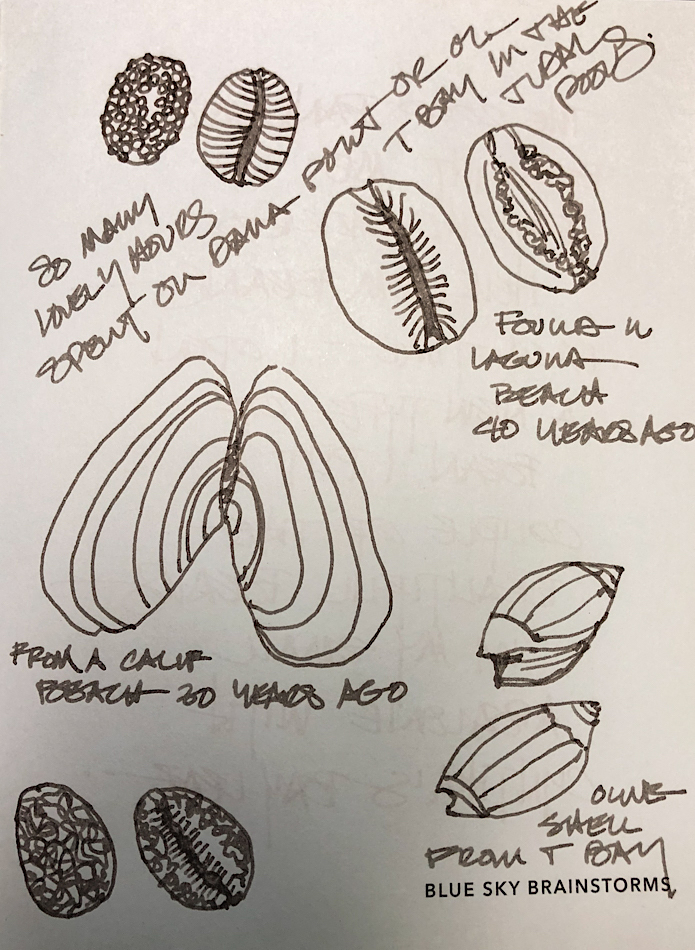 SO MANY
LOVELY HOURS
SPENT ON DANA POINT OR ON
T BAY IN THE
TIDAL
POOLS.
FOUND IN
LAGUNA
BEACH
40 YEARS AGO
FROM A CALIF
BEACH 20 YEARS AGO
OLIVE
SHELL
FROM T BAY
BLUE SKY BRAINSTORMS